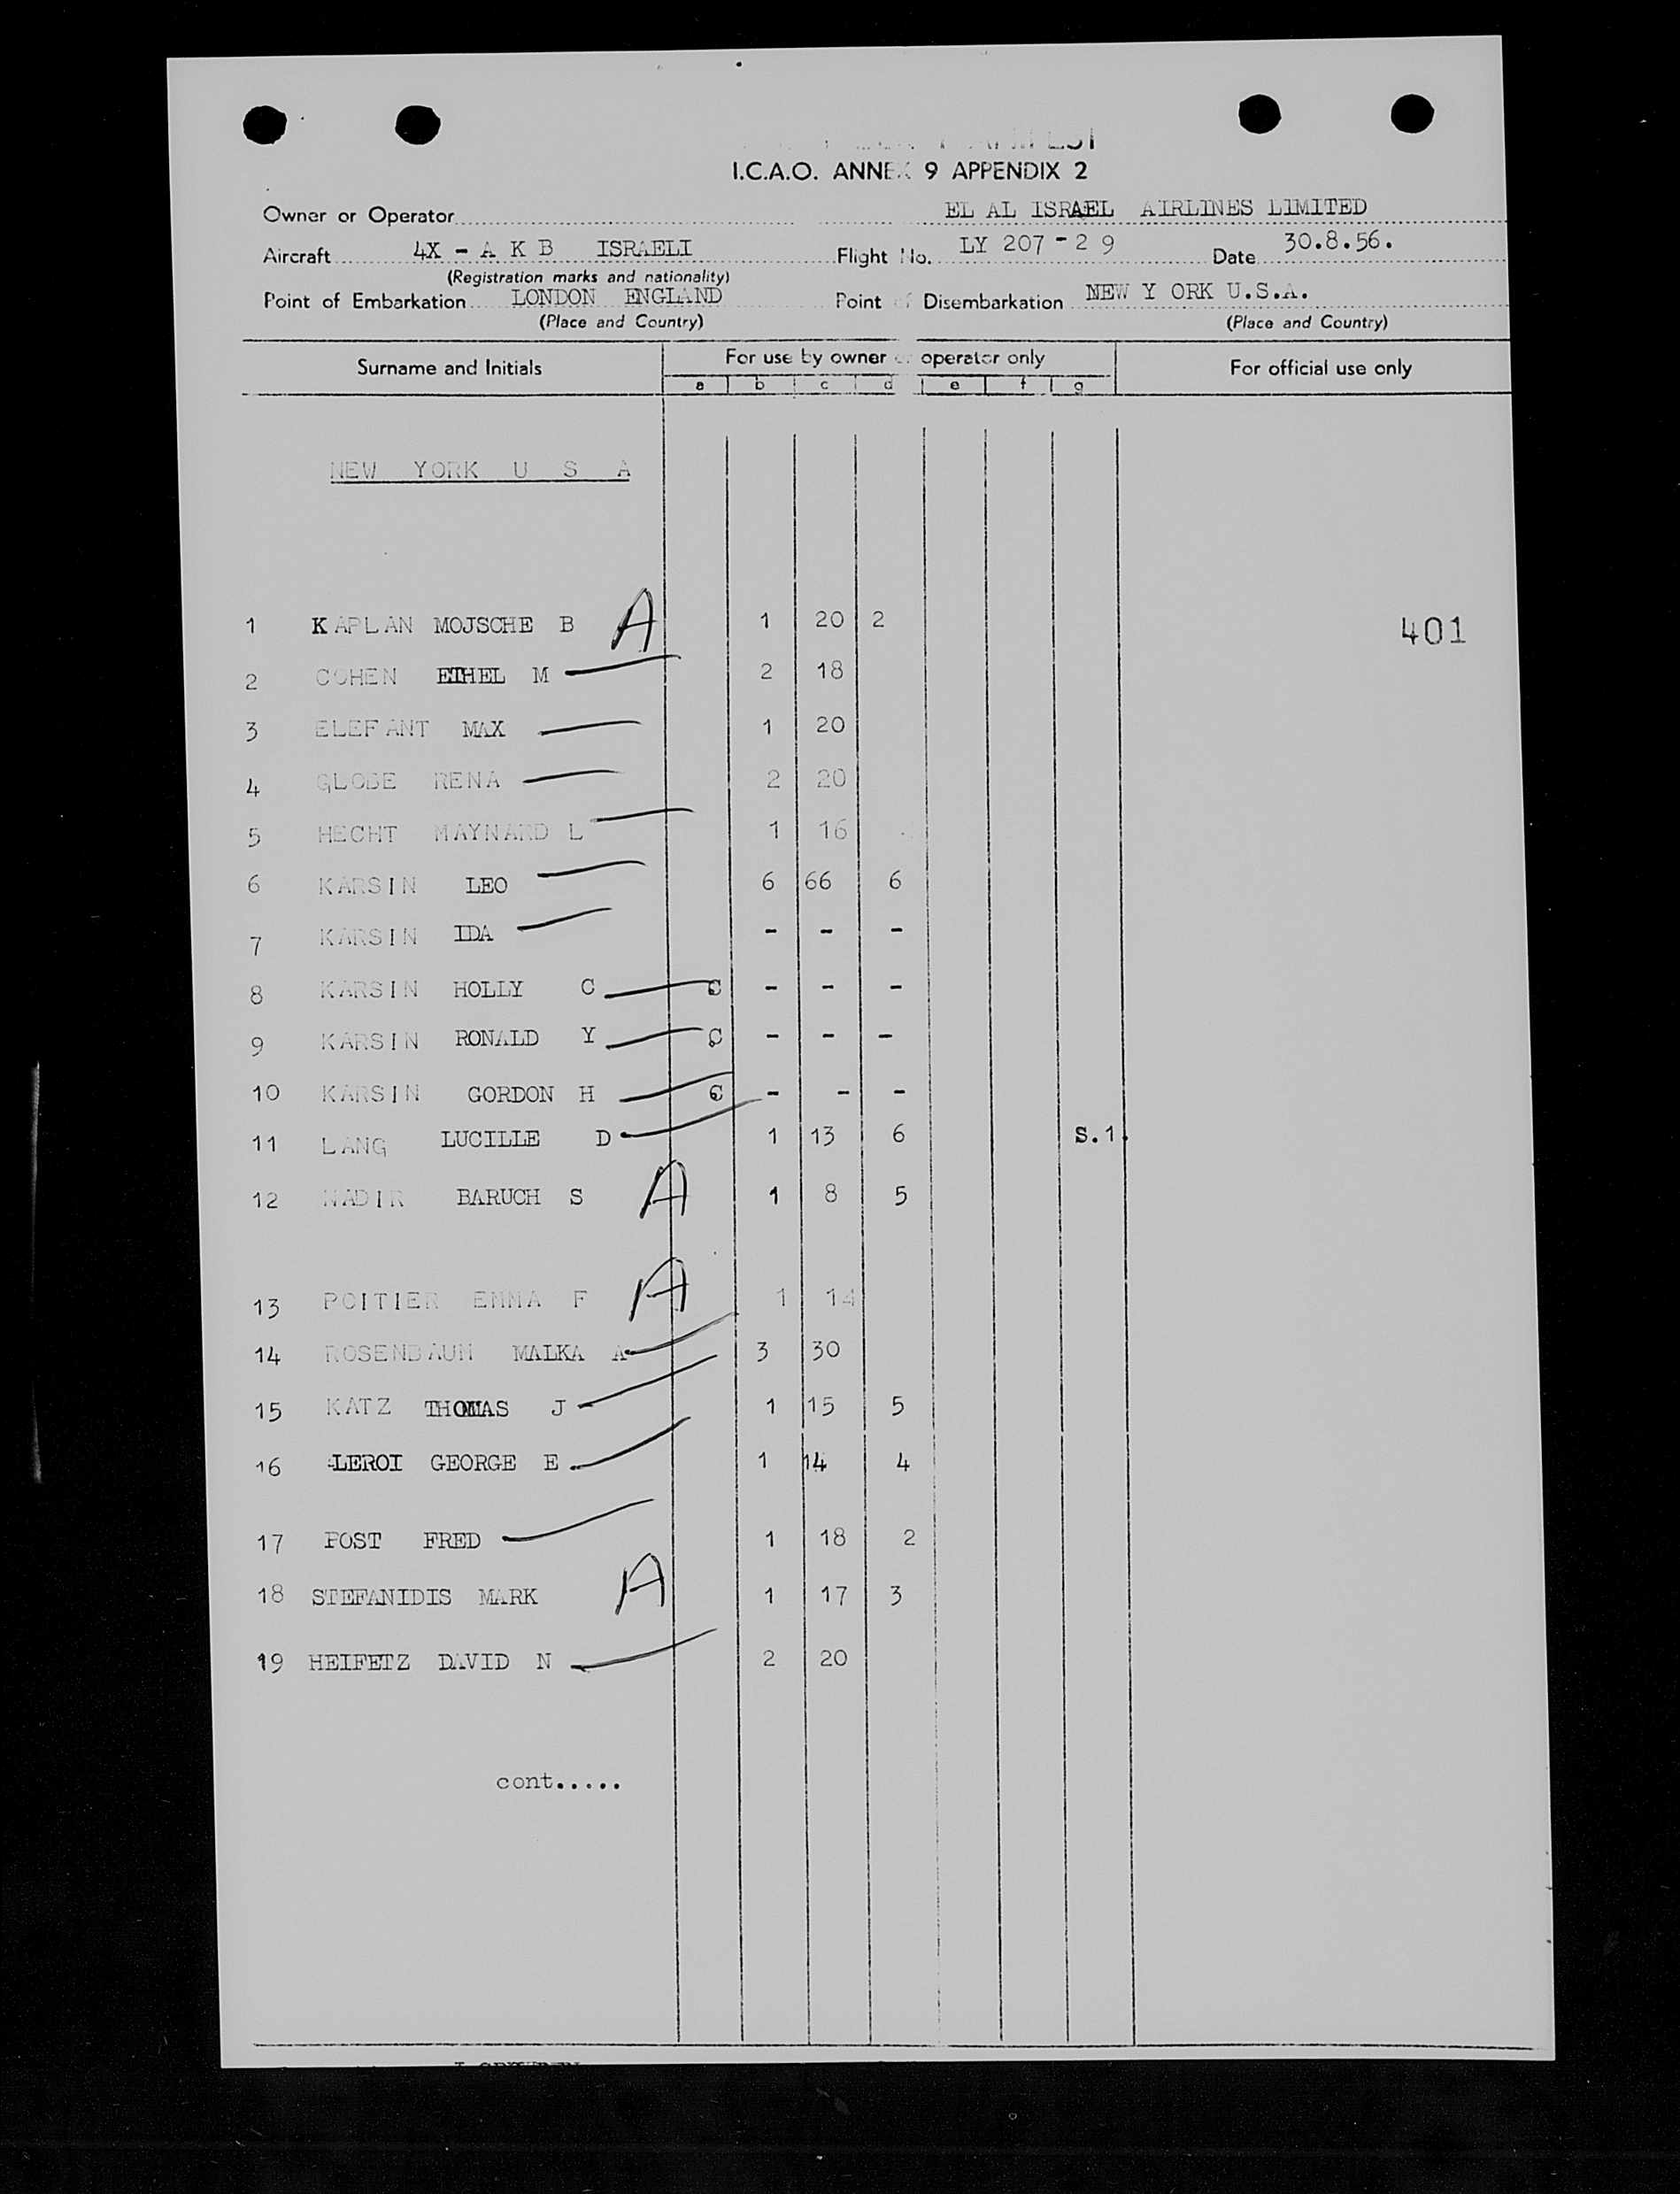 I.C.A.O. ANNEX 9 APPENDIX 2
Owner or Operator EL AL ISRAEL AIRLINES LIMITED
Aircraft 4X - A K B ISRAELI Flight No. LY 207 - 2 9 Date 30.8.56.
(Registration marks and nationality)
Point of Embarkation LONDON ENGLAND Point of Disembarkation NEW Y ORK U.S.A.
(Place and Country) (Place and Country)
Surname and Initials For use by owner or operator only For official use only
a b c d e f g
NEW YORK U S A
1 KAPLAN MOJSCHE B A 1 20 2 401
2 COHEN ETHEL M 2 18
3 ELEFANT MAX 1 20
4 GLOBE RENA 2 20
5 HECHT MAYNARD L 1 16
6 KARSIN LEO 6 66 6
7 KARSIN IDA - - -
8 KARSIN HOLLY C C - - -
9 KARSIN RONALD Y C - - -
10 KARSIN GORDON H C - - -
11 LANG LUCILLE D 1 13 6 S.1
12 NADIR BARUCH S A 1 8 5
13 POITIER EMMA F A 1 14
14 ROSENBAUM MALKA A 3 30
15 KATZ THOMAS J 1 15 5
16 LEROI GEORGE E 1 14 4
17 POST FRED 1 18 2
18 STEFANIDIS MARK A 1 17 3
19 HEIFETZ DAVID N 2 20
cont.....